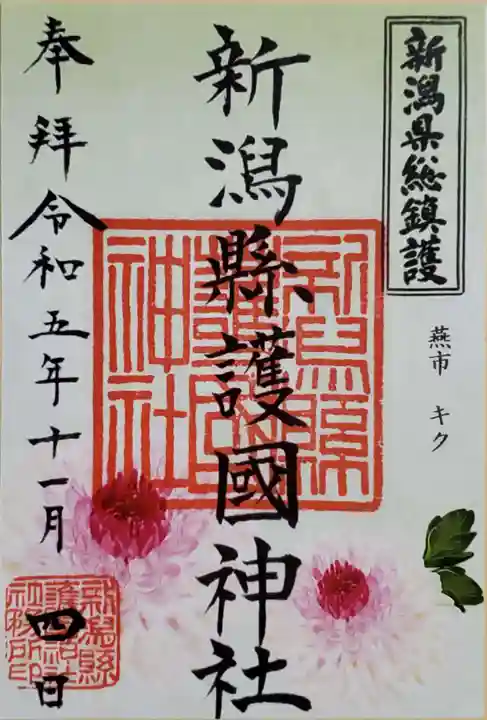 新潟県総鎮護
燕市 キク
新潟縣護國神社
奉拝令和五年十一月四日
新潟縣護國神社
新潟縣護國神社社務所印